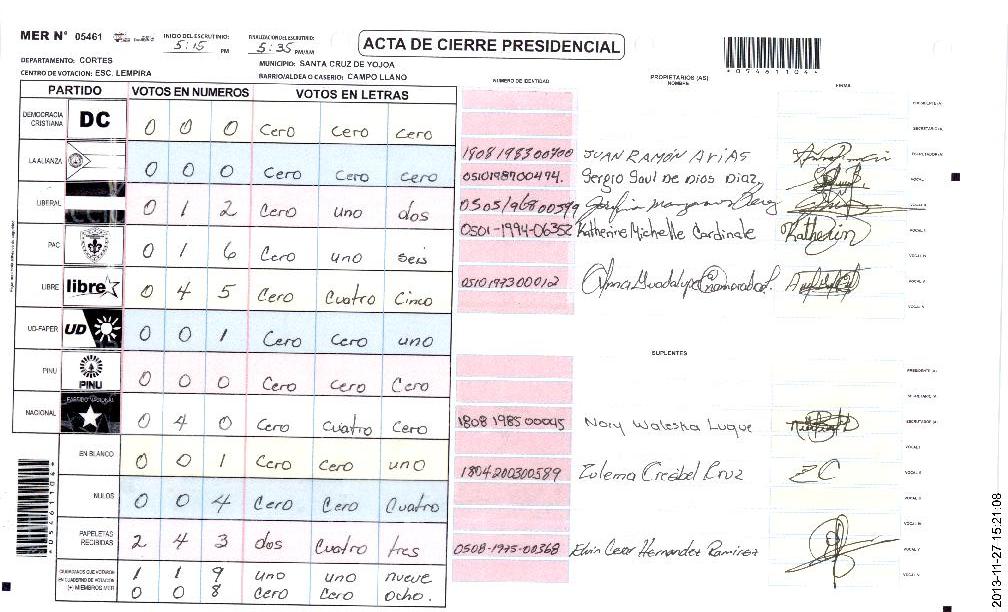 MER N° 05461 INICIO DEL ESCRUTINIO: 5:15 PM FINALIZACION DEL ESCRUTINIO: 5:35 PM/AM ACTA DE CIERRE PRESIDENCIAL
DEPARTAMENTO: CORTES MUNICIPIO: SANTA CRUZ DE YOJOA
CENTRO DE VOTACION: ESC. LEMPIRA BARRIO/ALDEA O CASERIO: CAMPO LLANO
*05461104*
PARTIDO VOTOS EN NUMEROS VOTOS EN LETRAS
DEMOCRACIA CRISTIANA DC 0 0 0 Cero Cero Cero
LA ALIANZA 0 0 0 Cero Cero Cero
LIBERAL 0 1 2 Cero uno dos
PAC 0 1 6 Cero uno seis
LIBRE libre 0 4 5 Cero Cuatro Cinco
UD-FAPER UD 0 0 1 Cero Cero uno
PINU PINU 0 0 0 Cero Cero Cero
NACIONAL PARTIDO NACIONAL 0 4 0 Cero Cuatro Cero
EN BLANCO 0 0 1 Cero Cero uno
NULOS 0 0 4 Cero Cero Cuatro
PAPELETAS RECIBIDAS 2 4 3 dos Cuatro tres
CIUDADANOS QUE VOTARON EN CUADERNO DE VOTACION 1 1 9 uno uno nueve
(+) MIEMBROS MER 0 0 8 Cero Cero ocho.
NUMERO DE IDENTIDAD PROPIETARIOS (AS) NOMBRE FIRMA
PRESIDENTE (A)
SECRETARIO (A)
1808198300700 JUAN RAMÓN ARIAS ESCRUTADOR (A)
0510198700494. Sergio Saul De Dios Diaz VOCAL I
0505196800599
0501-1994-06352 Katherine Michelle Cardinale Katherin
0510197300012 Anna Guadalupe
SUPLENTES
PRESIDENTE (A)
SECRETARIO (A)
1808198500045 Nory Waleska Luque ESCRUTADOR (A)
VOCAL I
1804200300589 Zulema Crisabel Cruz ZC VOCAL II
VOCAL III
0508-1975-00368 Elvin Cesar Hernandez Ramirez
2013-11-27 15:21:08